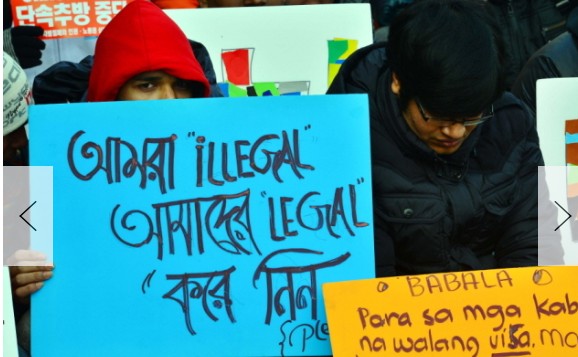 단속추방 중단
আমরা "ILLEGAL"
আমাদের "LEGAL"
"করে নিন
BABALA
Para sa mga kab
na walang visa, mo